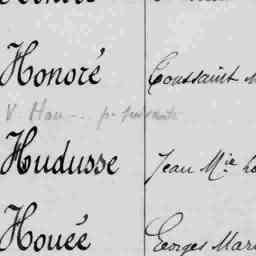 Honoré Toussaint
V. Hou... p. suivante
Hudusse Jean Mie
Houée Georges Mari